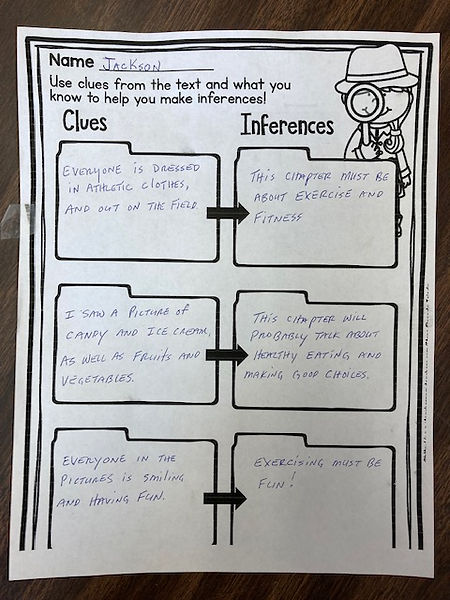 Name JACKSON
Use clues from the text and what you
know to help you make inferences!
Clues
Inferences
EVERYONE IS DRESSED
IN ATHLETIC CLOTHES,
AND OUT ON THE FIELD
THIS CHAPTER MUST BE
ABOUT EXERCISE AND
FITNESS
I SAW A PICTURE OF
CANDY AND ICE CREAM,
AS WELL AS FRUITS AND
VEGETABLES.
THIS CHAPTER WILL
PROBABLY TALK ABOUT
HEALTHY EATING AND
MAKING GOOD CHOICES.
EVERYONE IN THE
PICTURES IS SMILING
AND HAVING FUN.
EXERCISING MUST BE
FUN!